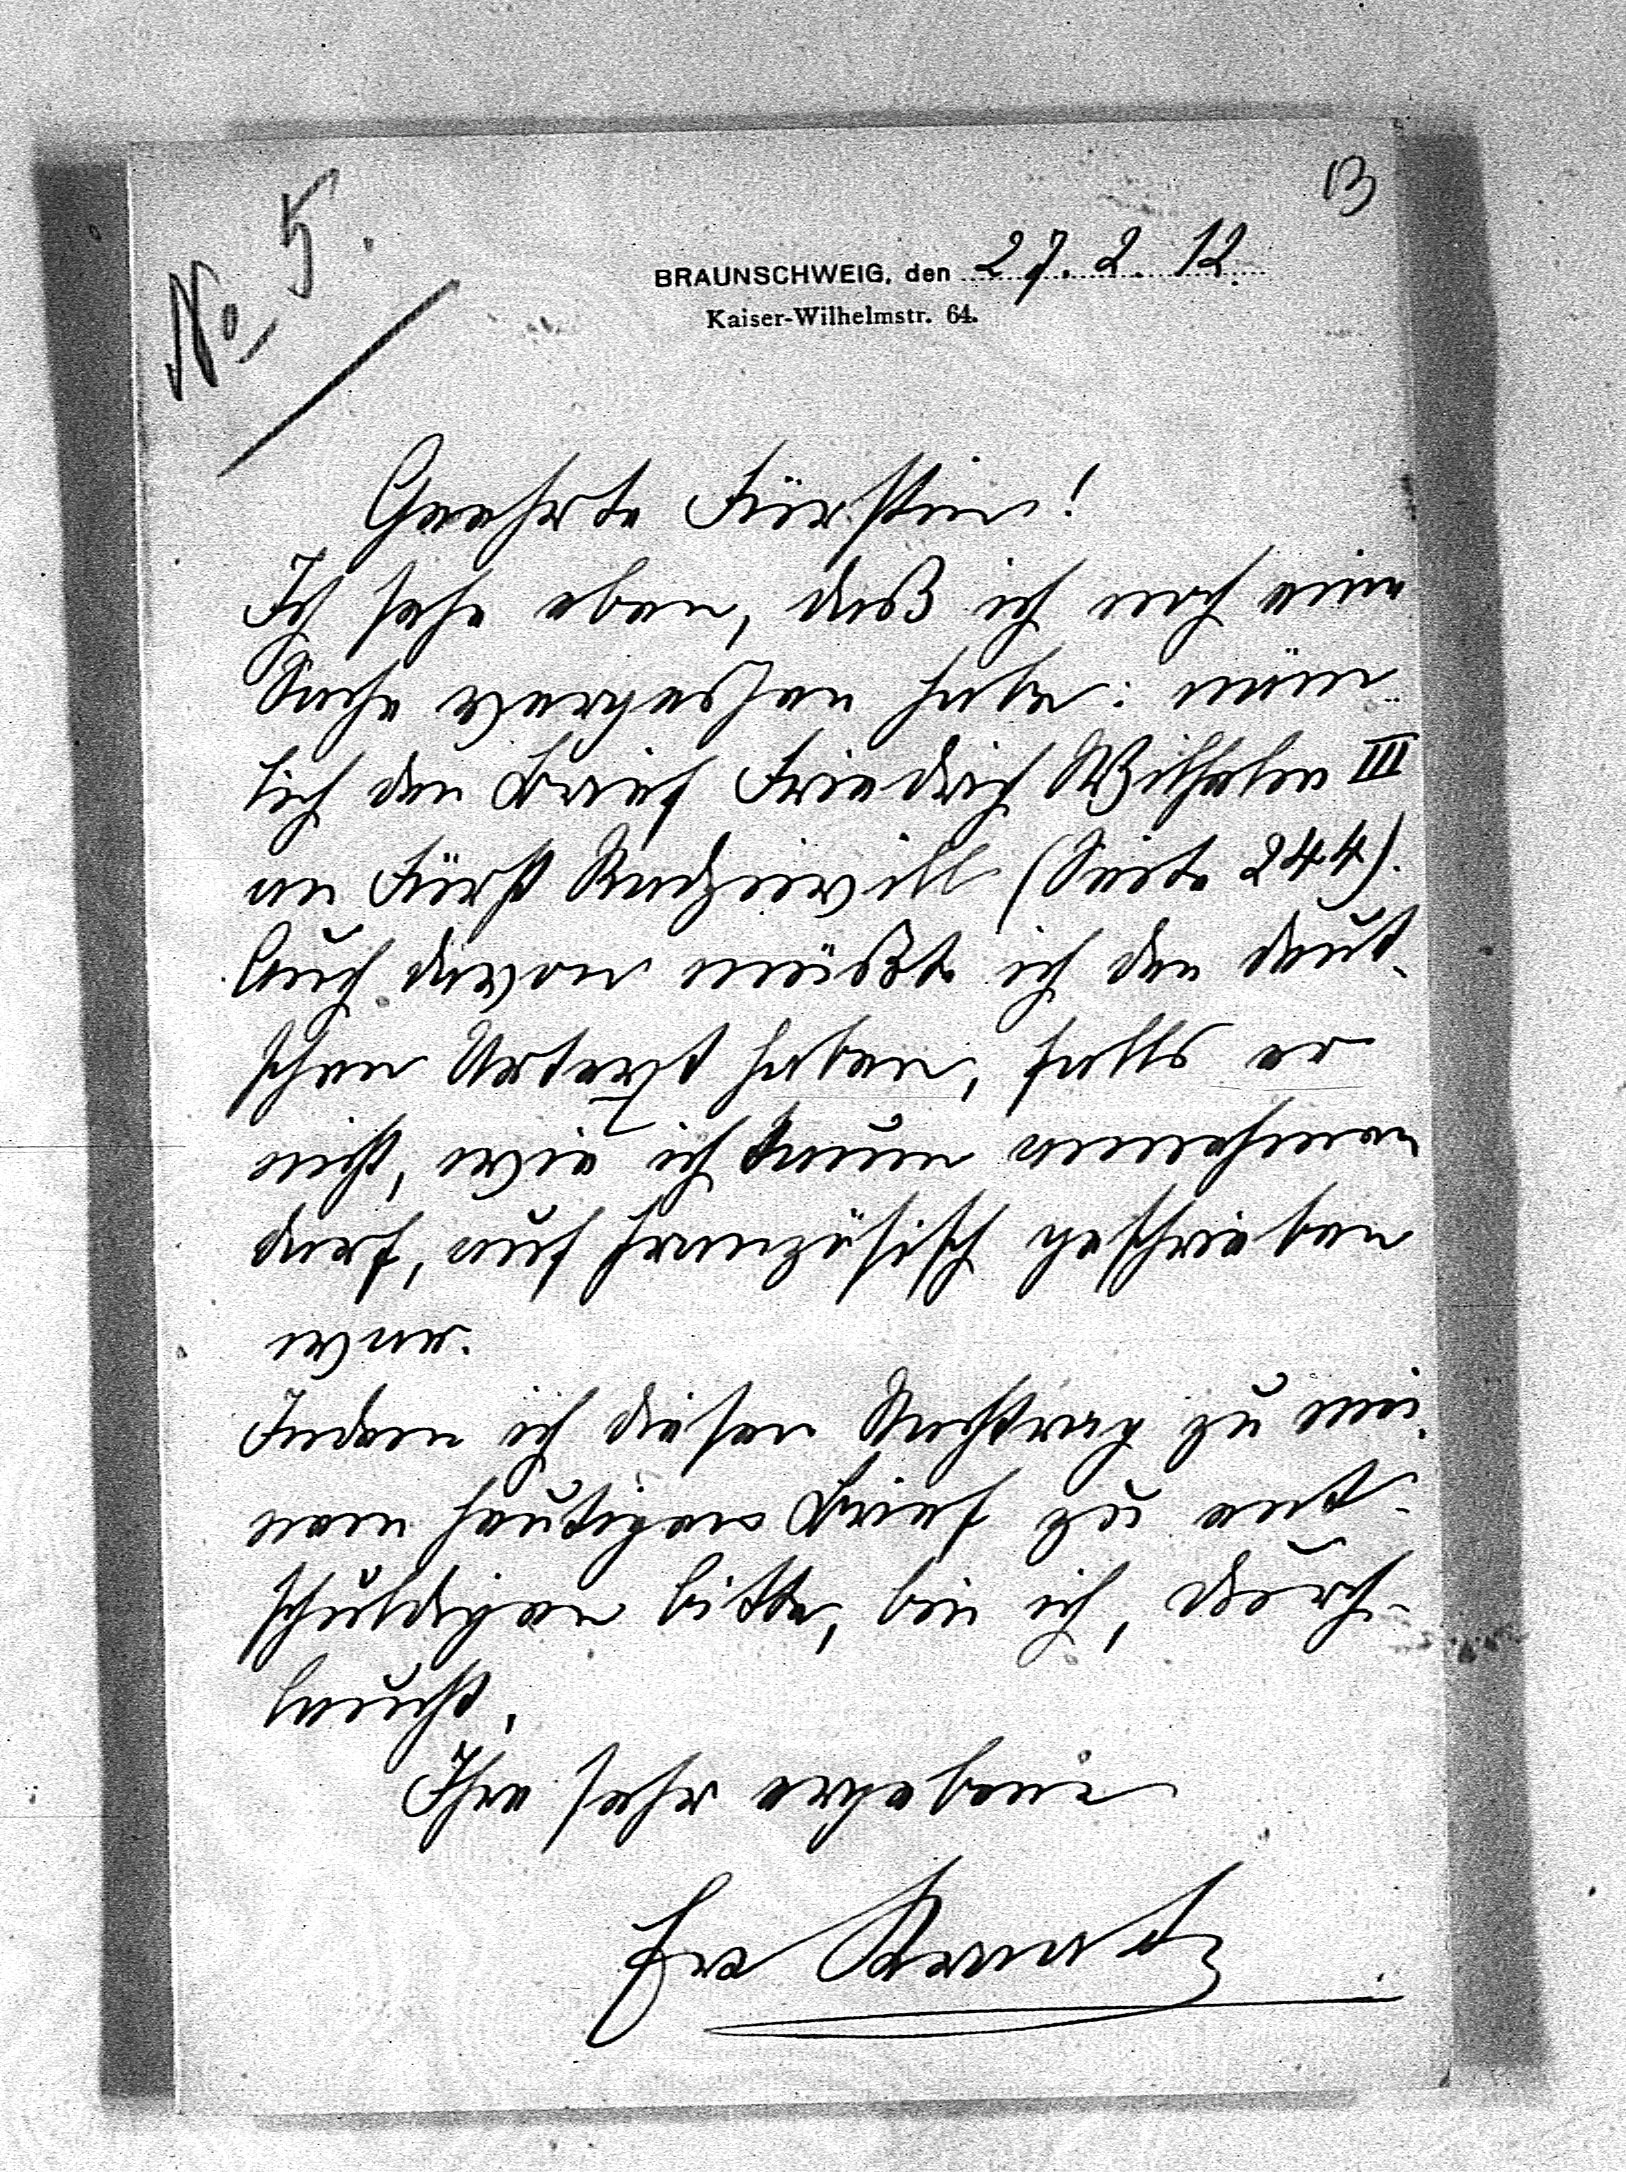 13
No 5.
BRAUNSCHWEIG, den 27. 2. 12.
Kaiser-Wilhelmstr. 64.
Geehrte Fürstin!
Ich sehe eben, daß ich noch eine
Sache vergessen habe: näm-
lich den Brief Friedrich Wilhelm III
an Fürst Radziwill (Seite 244).
Auch davon müßte ich den deut-
schen Urtext haben, falls er
nicht, wie ich kaum annehmen
darf, auf französisch geschrieben
war.
Indem ich diesen Nachtrag zu mei-
nem heutigen Brief zu ent-
schuldigen bitte, bin ich, Durch-
laucht,
Ihre sehr ergebene